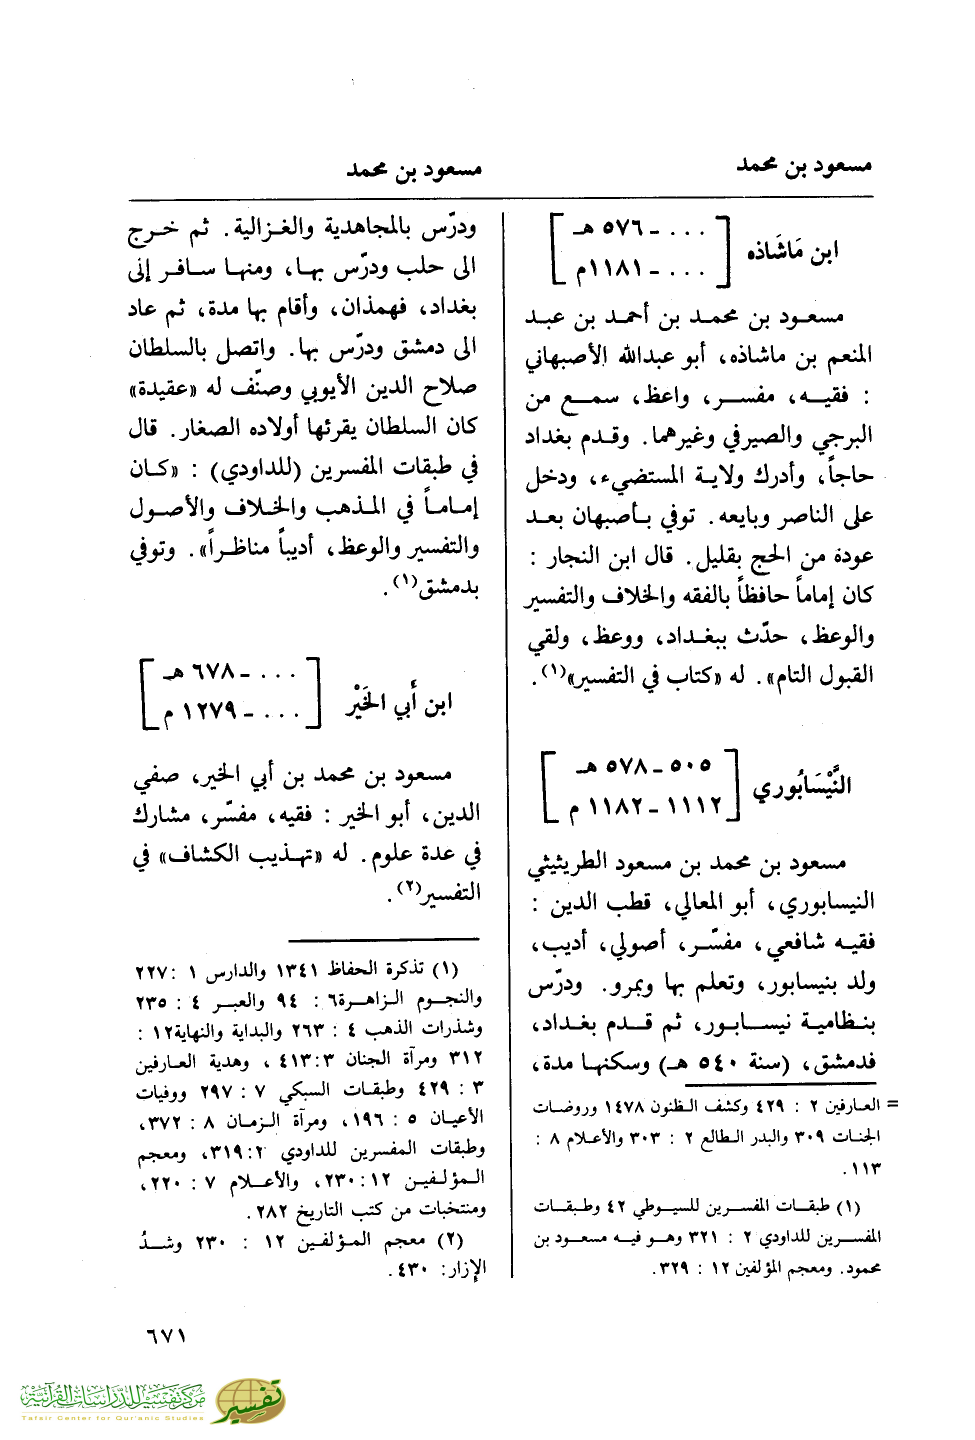 مسعود بن محمد
مسعود بن محمد
ابن مَاشَاذه
. . . ـ ٥٧٦ هـ
. . . ـ ١١٨١م
مسعود بن محمد بن أحمد بن عبد
المنعم بن ماشاذه، أبو عبدالله الأصبهاني
: فقيه، مفسر، واعظ، سمع من
البرجي والصيرفي وغيرهما. وقدم بغداد
حاجاً، وأدرك ولاية المستضيء، ودخل
على الناصر وبايعه. توفي بأصبهان بعد
عودة من الحج بقليل. قال ابن النجار :
كان إماماً حافظاً بالفقه والخلاف والتفسير
والوعظ، حدّث ببغداد، ووعظ، ولقي
القبول التام». له «كتاب في التفسير»(١).
النَّيْسَابُوري
٥٠٥ ـ ٥٧٨ هـ
١١١٢ ـ ١١٨٢ م
مسعود بن محمد بن مسعود الطريثيثي
النيسابوري، أبو المعالي، قطب الدين :
فقيه شافعي، مفسّر، أصولي، أديب،
ولد بنيسابور، وتعلم بها وبمرو. ودرّس
بنظامية نيسابور، ثم قدم بغداد،
فدمشق، (سنة ٥٤٠ هـ) وسكنها مدة،
= العارفين ٢ : ٤٢٩ وكشف الظنون ١٤٧٨ وروضات
الجنات ٣٠٩ والبدر الطالع ٢ : ٣٠٣ والأعلام ٨ :
١١٣.
(١) طبقات المفسرين للسيوطي ٤٢ وطبقات
المفسرين للداودي ٢ : ٣٢١ وهو فيه مسعود بن
محمود. ومعجم المؤلفين ١٢ : ٣٢٩.
ودرّس بالمجاهدية والغزالية. ثم خرج
الى حلب ودرّس بها، ومنها سافر إلى
بغداد، فهمذان، وأقام بها مدة، ثم عاد
الى دمشق ودرّس بها. واتصل بالسلطان
صلاح الدين الأيوبي وصنّف له «عقيدة»
كان السلطان يقرئها أولاده الصغار. قال
في طبقات المفسرين (للداودي) : «كان
إماماً في المذهب والخلاف والأصول
والتفسير والوعظ، أديباً مناظراً». وتوفي
بدمشق(١).
ابن أبي الخَيْر
. . . ـ ٦٧٨ هـ
. . . ـ ١٢٧٩ م
مسعود بن محمد بن أبي الخير، صفي
الدين، أبو الخير : فقيه، مفسّر، مشارك
في عدة علوم. له «تهذيب الكشاف» في
التفسير(٢).
(١) تذكرة الحفاظ ١٣٤١ والدارس ١ : ٢٢٧
والنجوم الزاهرة٦ : ٩٤ والعبر ٤ : ٢٣٥
وشذرات الذهب ٤ : ٢٦٣ والبداية والنهاية١٢ :
٣١٢ ومرآة الجنان ٣ : ٤١٣ ، وهدية العارفين
٣ : ٤٢٩ وطبقات السبكي ٧ : ٢٩٧ ووفيات
الأعيان ٥ : ١٩٦، ومرآة الزمان ٨ : ٣٧٢،
وطبقات المفسرين للداودي ٢ : ٣١٩، ومعجم
المؤلفين ١٢ : ٢٣٠، والأعلام ٧ : ٢٢٠،
ومنتخبات من كتب التاريخ ٢٨٢.
(٢) معجم المؤلفين ١٢ : ٢٣٠ وشدُ
الإزار: ٤٣٠.
٦٧١
مركز تفسير للدراسات القرآنية
Tafsir Center for Qur'anic Studies
تفسير